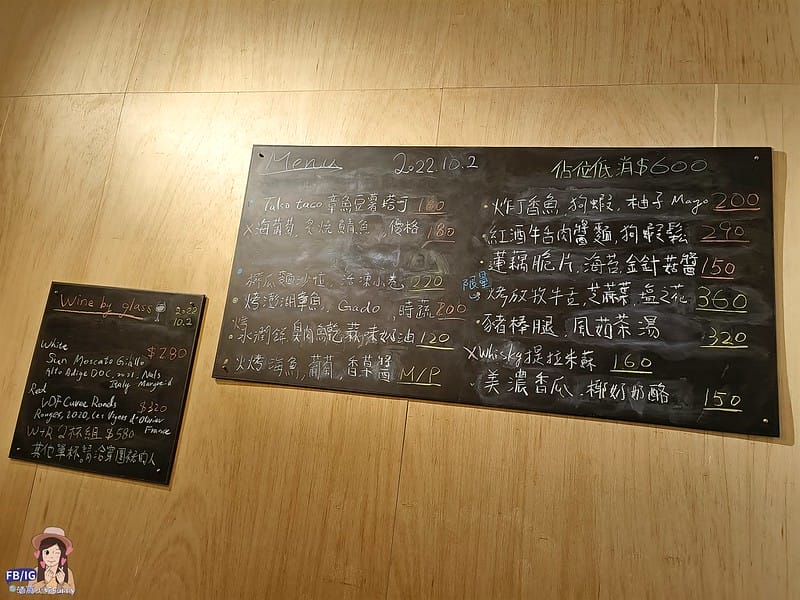 Menu 2022.10.2 佔位低消$600
Tako taco 章魚豆薯塔丁 160
X海葡萄,炙烧鯖魚,優格 180
絲瓜麵沙拉,冷凍小卷 220
烤澎湖章魚,Gado,時蔬 200
烤
水潤餅,奶油 120
火烤海魚,葡萄,香草醬 M/P
炸丁香魚,狗蝦,柚子Mayo 200
紅酒牛舌肉醬麵,狗蝦鬆 290
蓮藕脆片,海苔,金針菇醬 150
限量
烤放牧牛舌,芝麻葉,鹽之花 360
豬棒腿,鳳茹茶湯 320
XWhisky提拉米蘇 160
美濃香瓜,椰奶奶酪 150
Wine by glass 2022
10.2
White $280
Sun Moscato Giallo
Alto Adige DOC, Nals
Italy Margreid
Red
VDF Cuvee Ronds $320
Rouges, 2020, Les Vignes d'Olivier
France
W+R 2杯組 $580
其他單杯,請洽穿圍裙的人
FB/IG